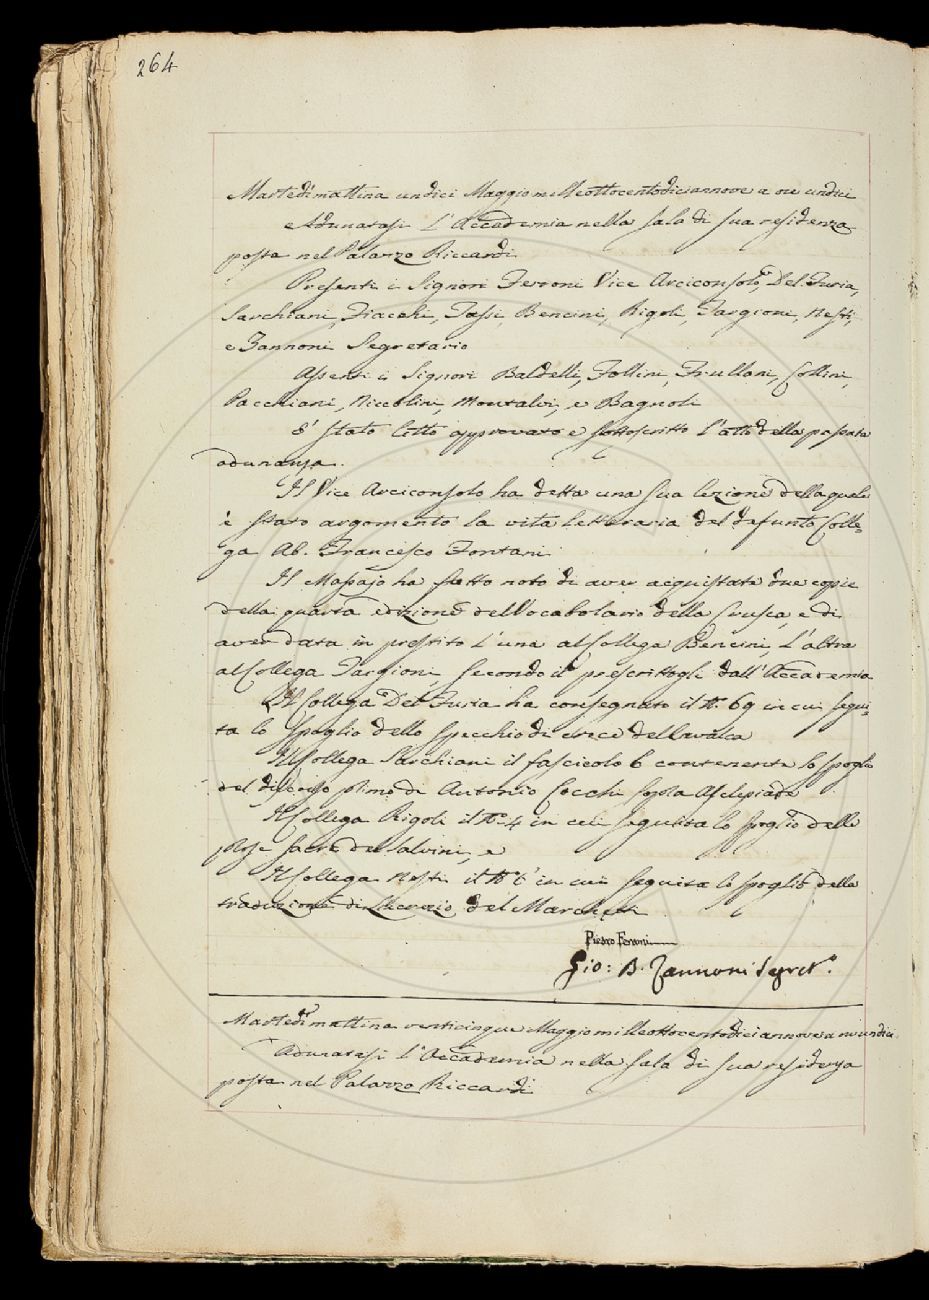 264
Martedì mattina undici Maggio milleottocentodiciannove a ore undici
Adunatasi l'Accademia nella sala di sua residenza
posta nel Palazzo Riccardi
Presenti i Signori Ferroni Vice Arciconsolo, Del Furia,
Sarchiani, Fiacchi, Tassi, Bencini, Rigoli, Targioni, Nesti,
e Zannoni Segretario
Assenti i Signori Baldelli, Follini, Frullani, Collini,
Pacchiani, Niccolini, Montalvi, e Bagnoli
È stato letto approvato e sottoscritto l'atto della passata
adunanza.
Il Vice Arciconsolo ha detta una sua lezione della quale
è stato argomento la vita letteraria del defunto Colle=
ga Ab. Francesco Fontani
Il Massajo ha fatto noto di aver acquistate due copie
della quarta edizione del Vocabolario della Crusca, e di
aver data in prestito l'una al Collega Bencini, l'altra
al Collega Targioni, secondo il prescrittogli dall'Accademia
Il Collega Del Furia ha consegnato il N. 69 in cui segui=
ta lo spoglio dello specchio di croce del Cavalca
Il Collega Sarchiani il fascicolo 6 contenente lo spoglio
del discorso primo di Antonio Cocchi sopra Asclepiade
Il Collega Rigoli il N. 4 in cui seguita lo spoglio delle
prose sacre del Salvini, e
Il Collega Nesti il N. 6 in cui seguita lo spoglio della
traduzione di Lucrezio del Marchetti
Pietro Ferroni
Gio: B. Zannoni Segret.º
Martedì mattina venticinque Maggio milleottocentodiciannove a ore undici
Adunatasi l'Accademia nella sala di sua residenza
posta nel Palazzo Riccardi